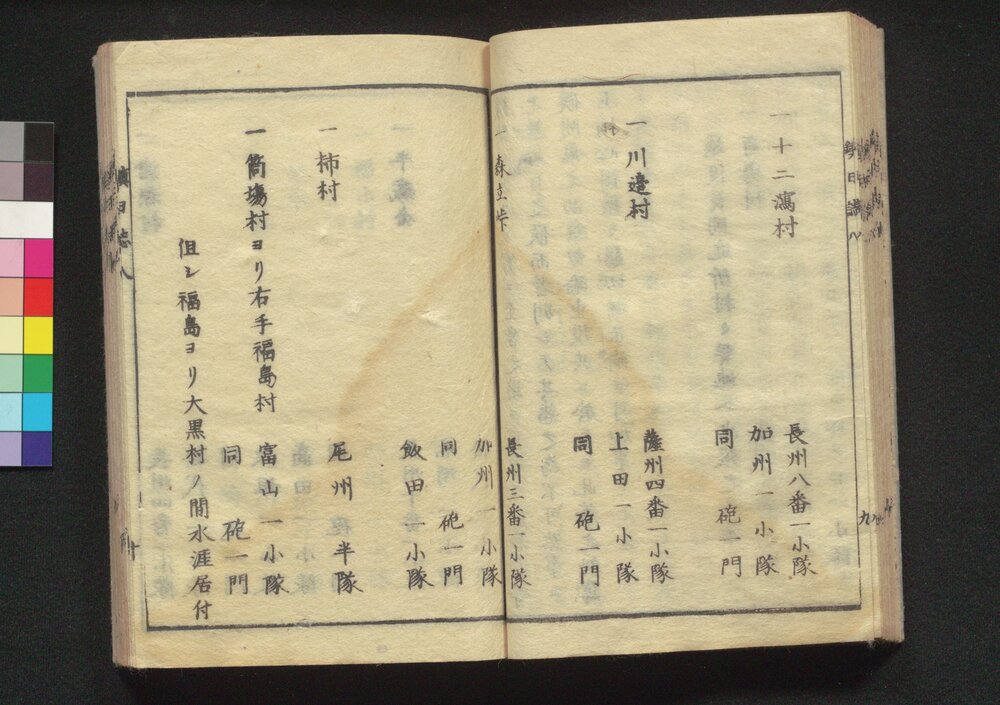 一十二潟村
長州八番一小隊
加州一小隊
同砲一門
一川邉村
薩州四番一小隊
上田一小隊
同砲一門
一森立峠
長州三番一小隊
加州一小隊
同砲一門
飯田一小隊
一柿村
尾州半隊
一筒塲村ヨリ右手福島村
富山一小隊
同砲一門
但シ福島ヨリ大黒村ノ間水涯居付